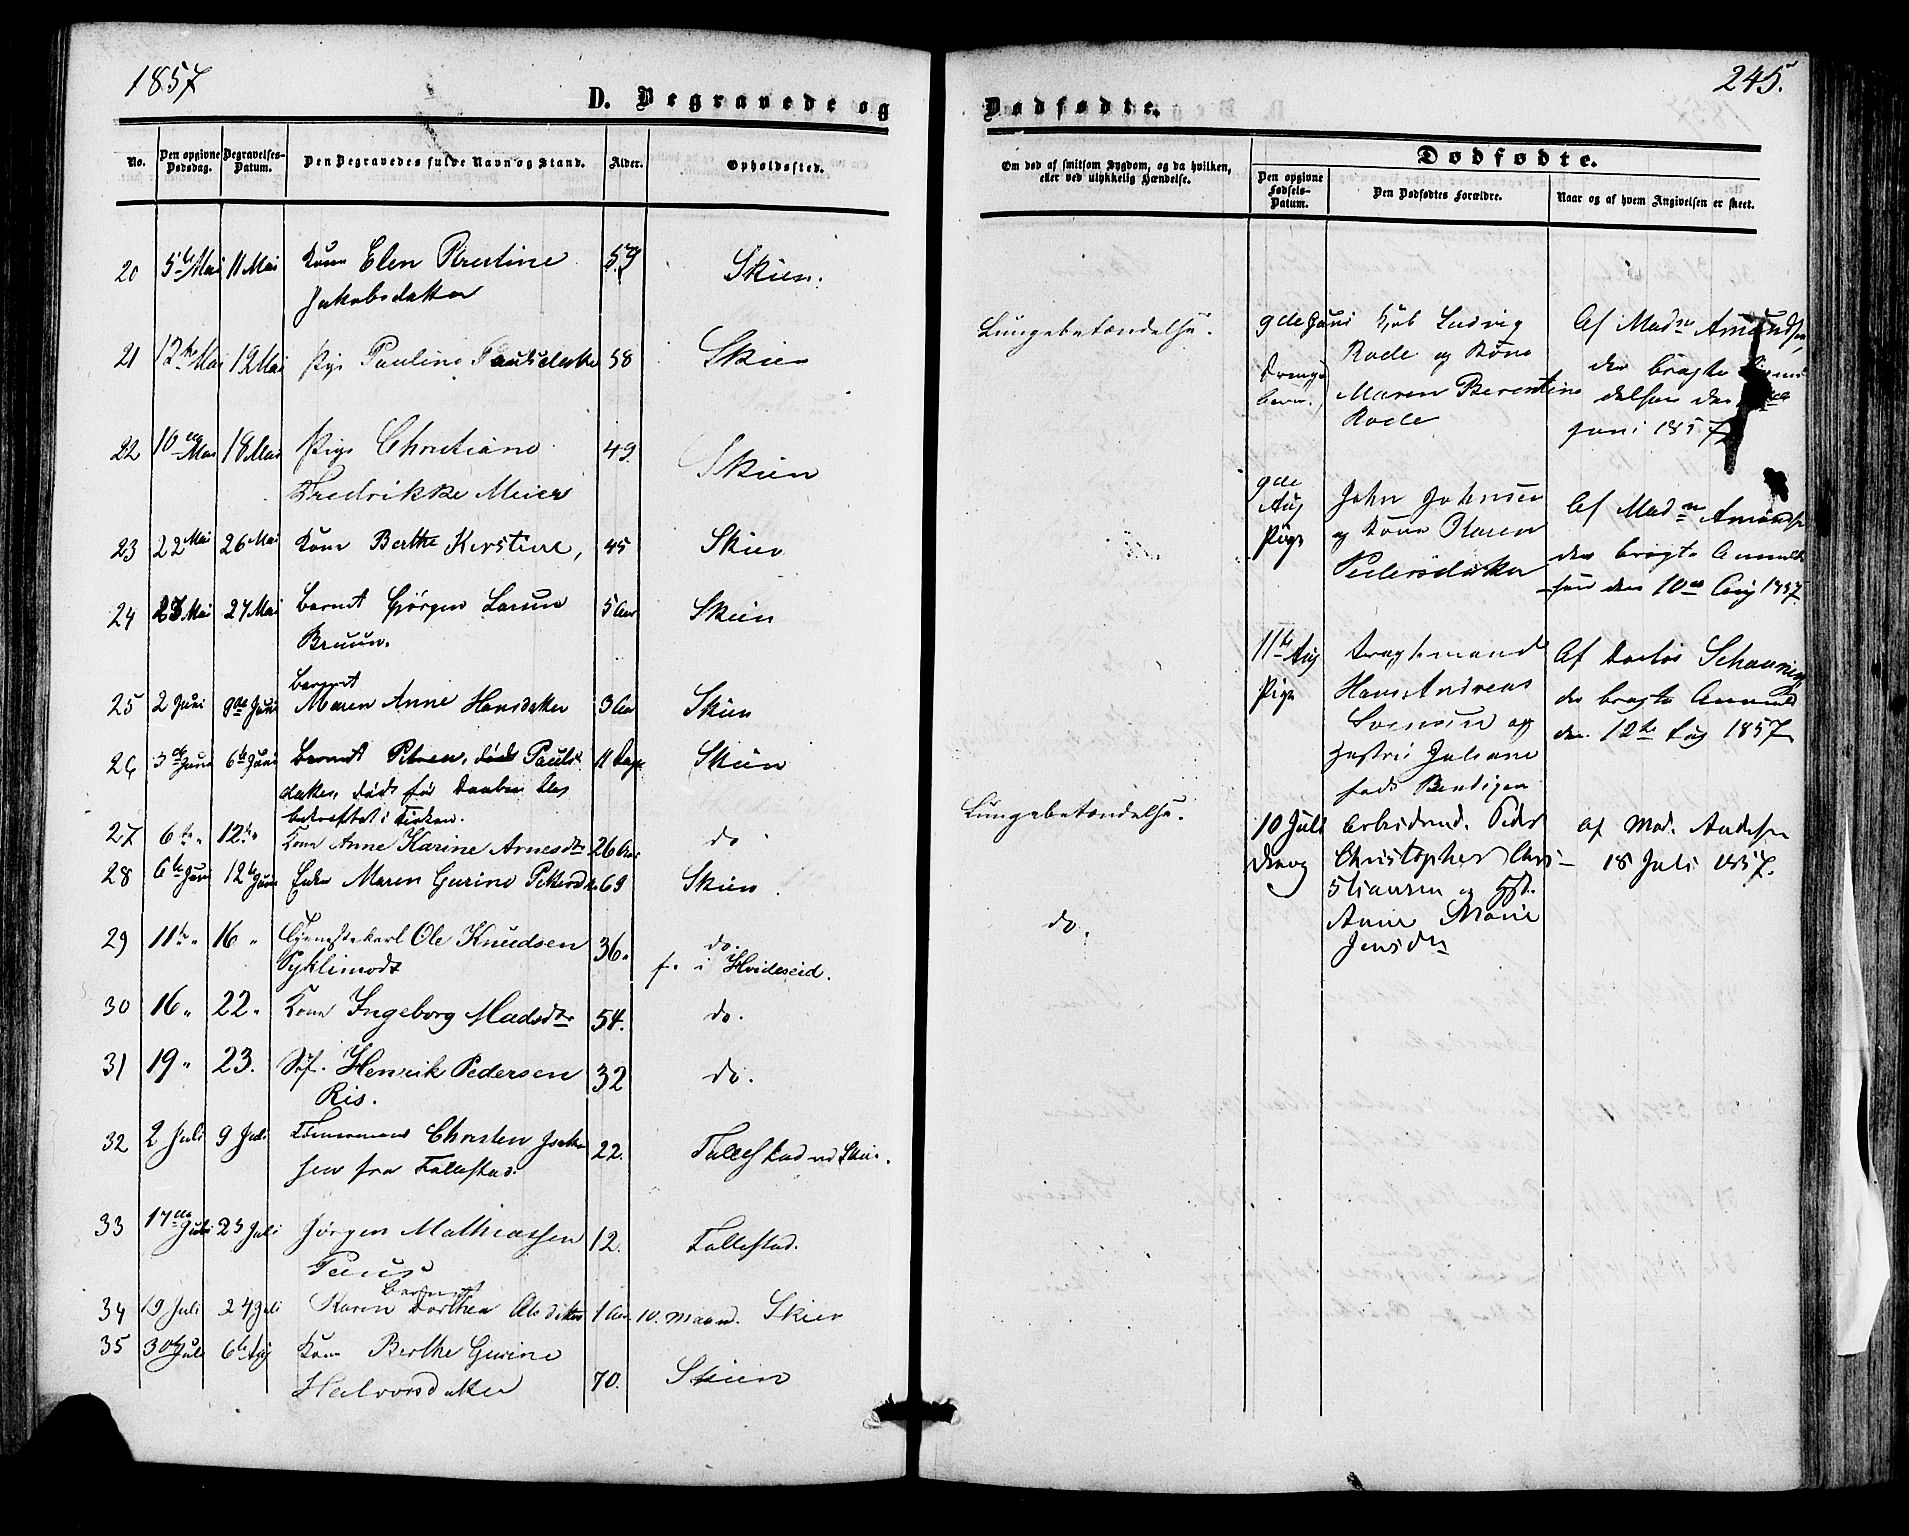 1857
D. Begravede og
No.
Den opgivne
Dødsdag.
Begravelses-
Datum.
Den Begravedes fulde Navn og Stand.
Alder.
Opholdssted.
20 5te Mai 11 Mai Kone Elen Kirstine 59 Skien.
Jakobsdatter
21 12te Mai 19 Mai Pige Pauline Paulsdatter 58 Skien
22 10de Mai 18 Mai Pige Christiane 49. Skien
Fredrikke Meier
23 22 Mai 26 Mai Kone Berthe Kirstine, 45 Skien
24 23 Mai 27 Mai Barnet Jørgen Larun 5 Aar Skien
Bruun.
Barnet
25 2 Juni 9de Juni Maren Anne Hansdatter 3 Aar Skien
26 3de Juni 6te Juni Barnet Petrea, død Pauls 11 Dage Skien
datter, døde før Daaben blev
bekræftet i Kirken.
27 6te " 12te " Kone Anne Karine Arnesdtr 26 Aar do
28 6te Juni 12te Juni Enke Maren Gurine Pettersdtr 69 Skien
29 11te " 16 " Tjenestekarl Ole Knudsen 36. do.
f. i Hvideseid.
30 16 " 22 " Kone Ingeborg Madsdtr 54. do.
31 19 " 23. Søf. Henrik Pedersen 32 do.
Ris.
32 2 Juli 9 Juli Tømmermand Christen Isak 22. Follestad ved Skien.
sen fra Follestad.
33 17de Juli 23 Juli Jørgen Mathiassen 12. Follestad.
Paus.
Barnet
34 19 Juli 24 Juli Karen Dorthea Olsdatter 1 Aar 10 Maand. Skien
35 30te Juli 6te Aug Kone Berthe Gurine
Halvorsdatter 70. Skien
245.
Dødfødte.
Om død af smitsom Sygdom, og da hvilken,
eller ved ulykkelig Hændelse.
Dødfødte.
Den opgivne
Fødsels-
Datum.
Den Dødfødtes Forældre.
Naar og af hvem Angivelsen er skeet.
Lungebetændelse.
9de Juni Kjøb Ludvig Af Madm Amundsen,
Rode og Kone der bragte
Drenge Maren Berentine delsen den
barn. Rode Juni 1857
9de John Johnsen Af Madm Amunds
Aug og Kone Maren der bragte Anmeld
Pige Pedersdatter sen den 10de Aug 1857.
11te Aug Fragtmand Af Doctor Schauning
Pige Hans Andreas der bragte Anmeld
Svensen og den 12te Aug 1857
Hustru Juliane
født Bendixen
Lungebetændelse.
10 Juli Arbeidsmd. Peder Af Mad. Andersen
Dreng Christopher Chri- 18 Juli 1857.
stiansen og Hst.
Anne Marie
Jensdtr
do.